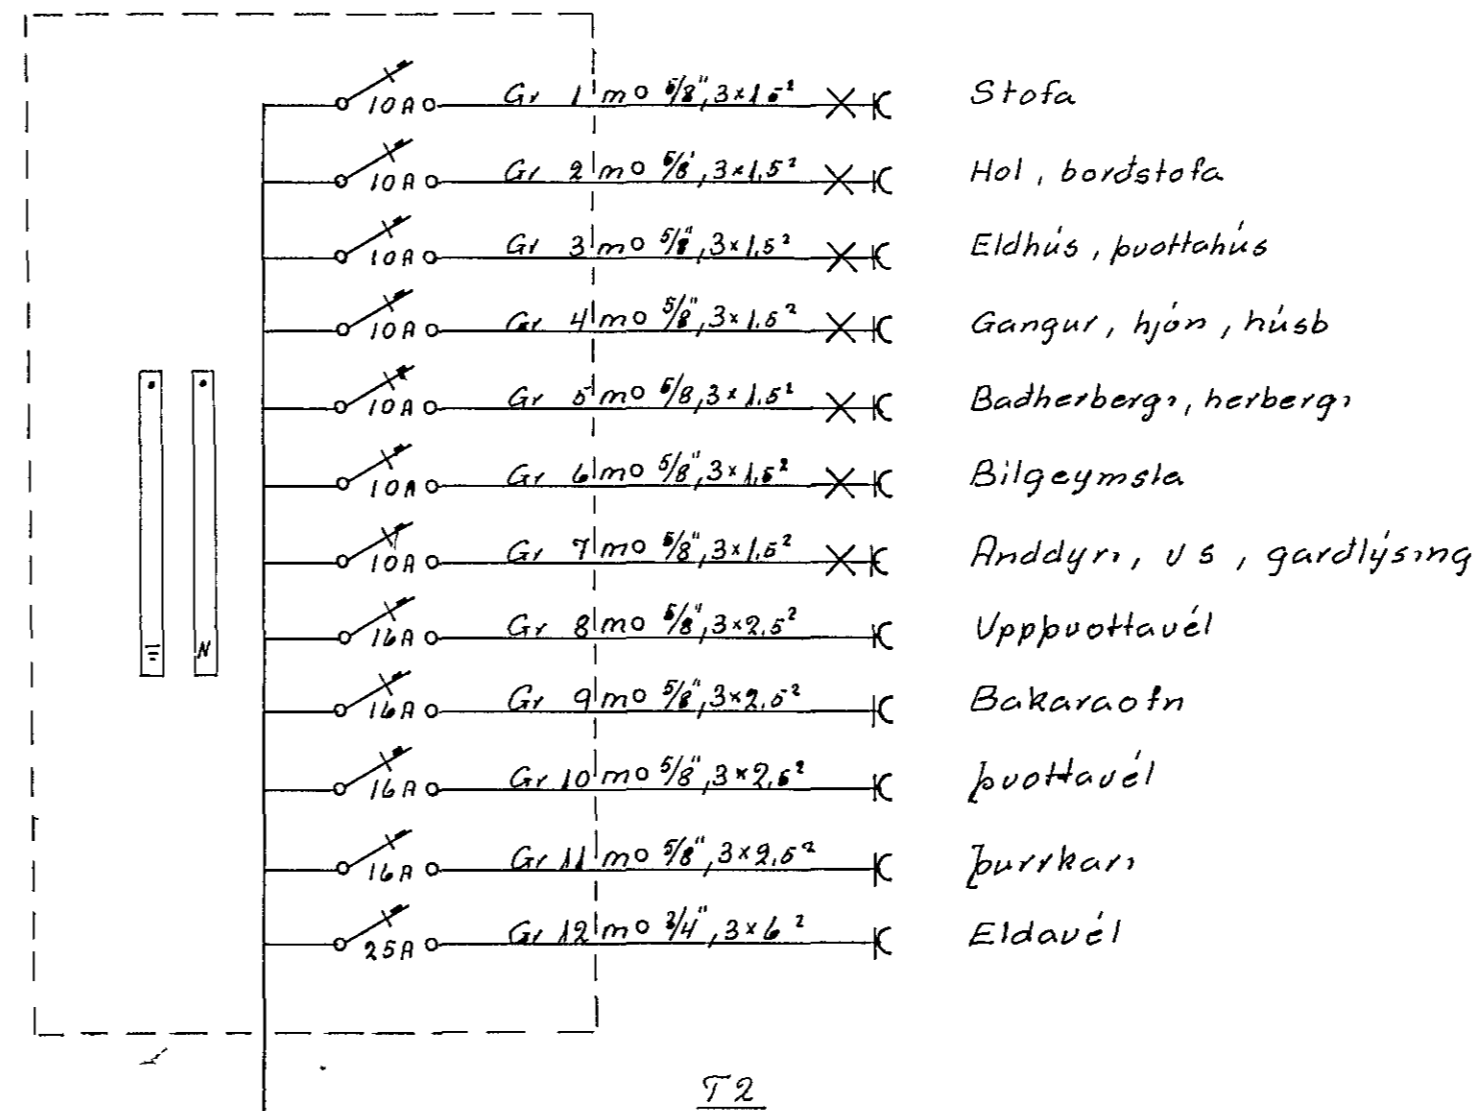 10A Gr 1 mo 5/8", 3×1.5² Stofa
10A Gr 2 mo 5/8', 3×1,5² Hol, borðstofa
10A Gr 3 mo 5/8", 3×1,5² Eldhús, þvottahús
10A Gr 4 mo 5/8", 3×1.5² Gangur, hjón, húsb
10A Gr 5 mo 5/8, 3×1.5² Baðherbergi, herbergi
10A Gr 6 mo 5/8", 3×1,5² Bilgeymsla
10A Gr 7 mo 5/8", 3×1.5² Anddyri, v s, garðlýsing
16A Gr 8 mo 5/8", 3×2,5² Uppþvottavél
16A Gr 9 mo 5/8", 3×2.5² Bakaraofn
16A Gr 10 mo 5/8", 3×2,5² Þvottavél
16A Gr 11 mo 5/8", 3×2.5² Þurrkari
25A Gr 12 mo 3/4", 3×6² Eldavél
N
T2